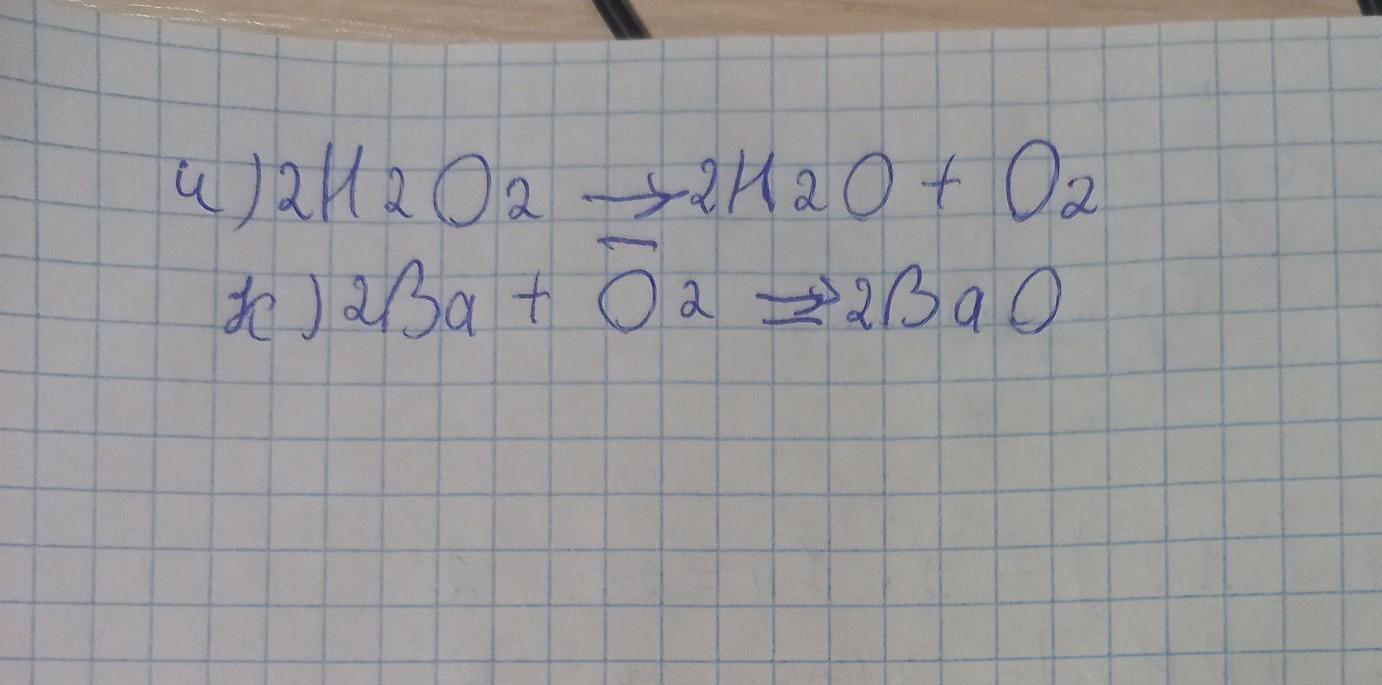 и) 2H2O2 → 2H2O + O2
к) 2Ba + O2 ⇒ 2BaO